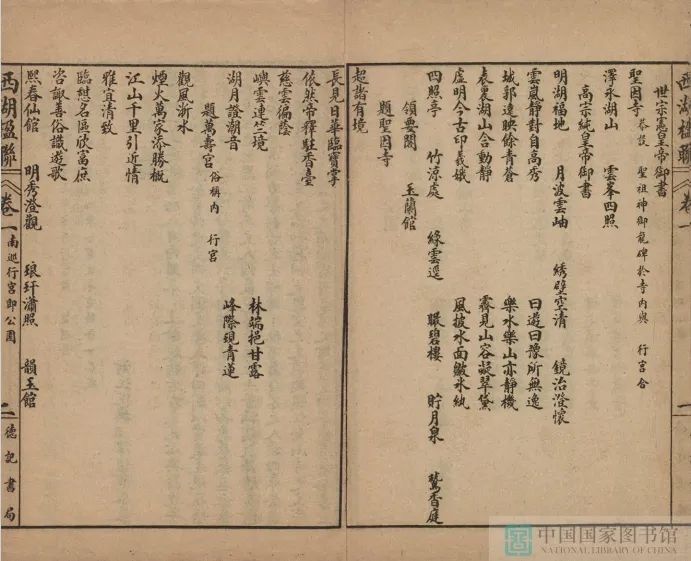 西湖楹聯 卷一 一
世宗憲皇帝御書
聖因寺 恭設 聖祖神御龍碑於寺內與 行宮合
澤永湖山 雲峯四照
高宗純皇帝御書
明湖福地 月波雲岫 綉壁空清 鏡治澄懷
雲嵐靜對自高秀 曰遊曰豫所無逸
城郭遠映餘青蒼 樂水樂山亦靜機
表裏湖山合動靜 霽見山容凝翠黛
虛明今古印羲娥 風披水面皺氷紈
四照亭 竹涼處 綠雲逕 瞰碧樓 貯月泉 鷲香庭
領要閣 玉蘭館
題聖因寺
超詣有境
長見日華臨寶掌
依然帝釋駐香臺
慈雲徧蔭
嶼雲連竺境 林端挹甘露
湖月證潮音 峰際現青蓮
題萬壽宮 俗稱內 行宮
觀風浙水
煙火萬家添勝概
江山千里引近情
雅宜清致
臨憩名區欣萬庶
咨諏善俗識遊歌
熙春仙館 明秀澄觀 琅玕瀟照 韻玉館
西湖楹聯 卷一 南巡行宮即公園 二 德記書局
中国国家图书馆
NATIONAL LIBRARY OF CHINA